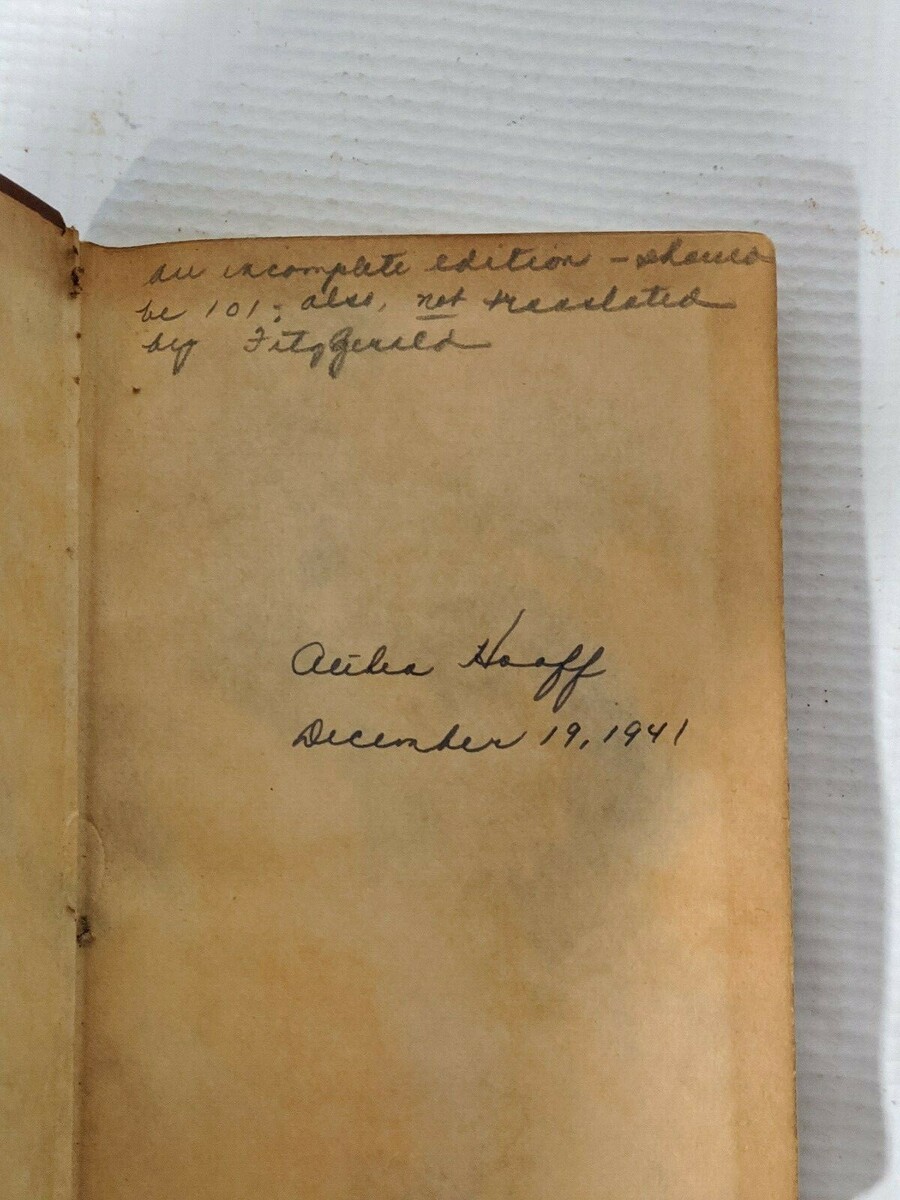 an incomplete edition – should
be 101; also, not translated
by FitzGerald
Haaff
December 19, 1941